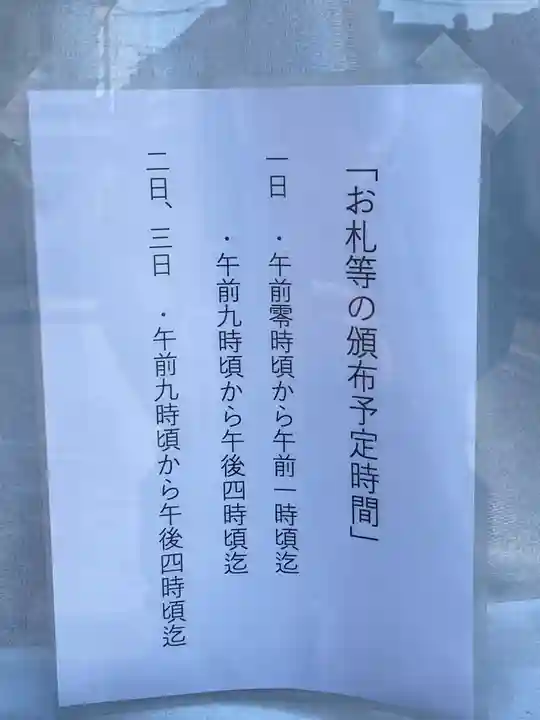 「お札等の頒布予定時間」
一日 ・午前零時頃から午前一時頃迄
・午前九時頃から午後四時頃迄
二日、三日 ・午前九時頃から午後四時頃迄